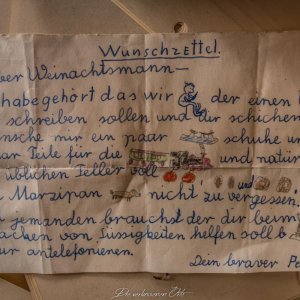 Wunschzettel.
ber Weinachtsmann—
habe gehört das wir der einen
schreiben sollen und dir schicken
nsche mir ein paar schuhe un
ar Teile für die und natür
üblichen Teller voll und
Marzipan nicht zu vergessen.
jemanden brauchst der dir beim
acken von Süssigkeiten helfen soll
ur antelefonieren.
Dein braver Pe